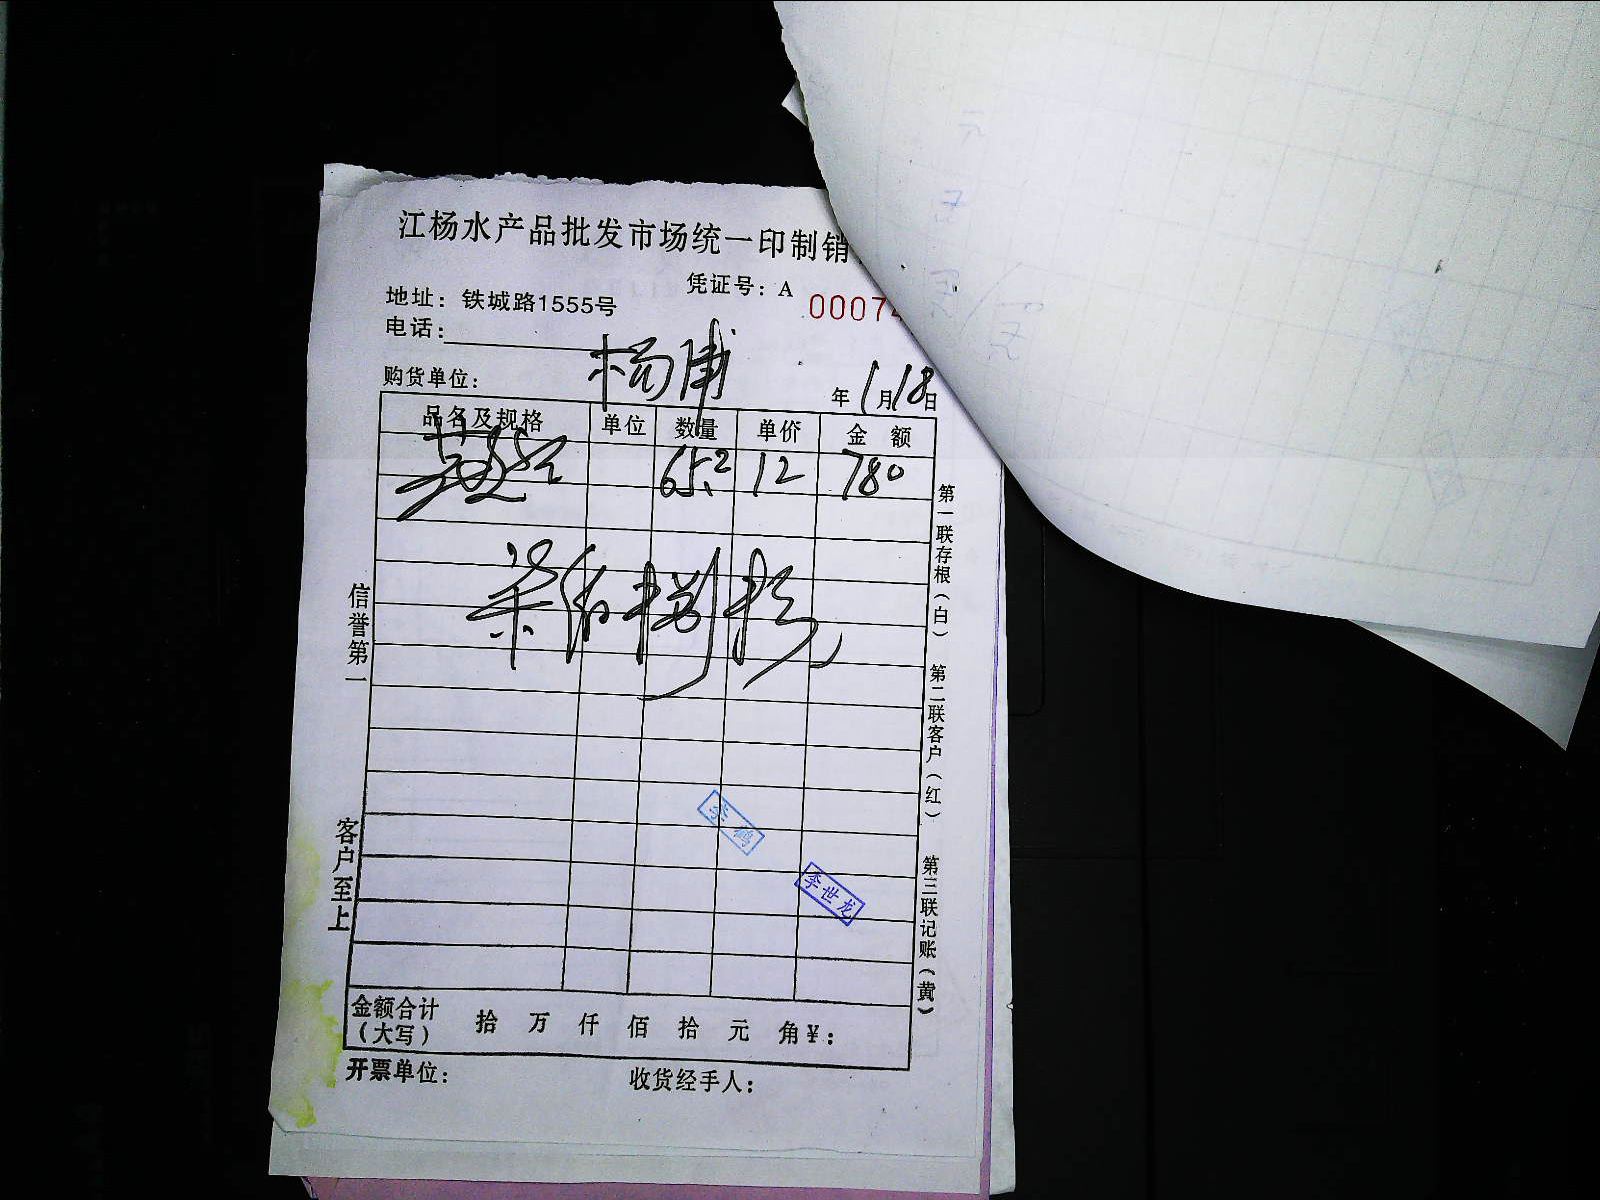 江杨水产品批发市场统一印制销
凭证号：A 00074
地址：铁城路1555号
电话：
购货单位：杨浦 年1月18日
品名及规格 单位 数量 单价 金 额
65.2 12 780
柒佰捌拾元
信誉第一
客户至上
第一联存根（白）
第二联客户（红）
第三联记账（黄）
李鹤
李世龙
金额合计（大写） 拾 万 仟 佰 拾 元 角￥：
开票单位： 收货经手人：